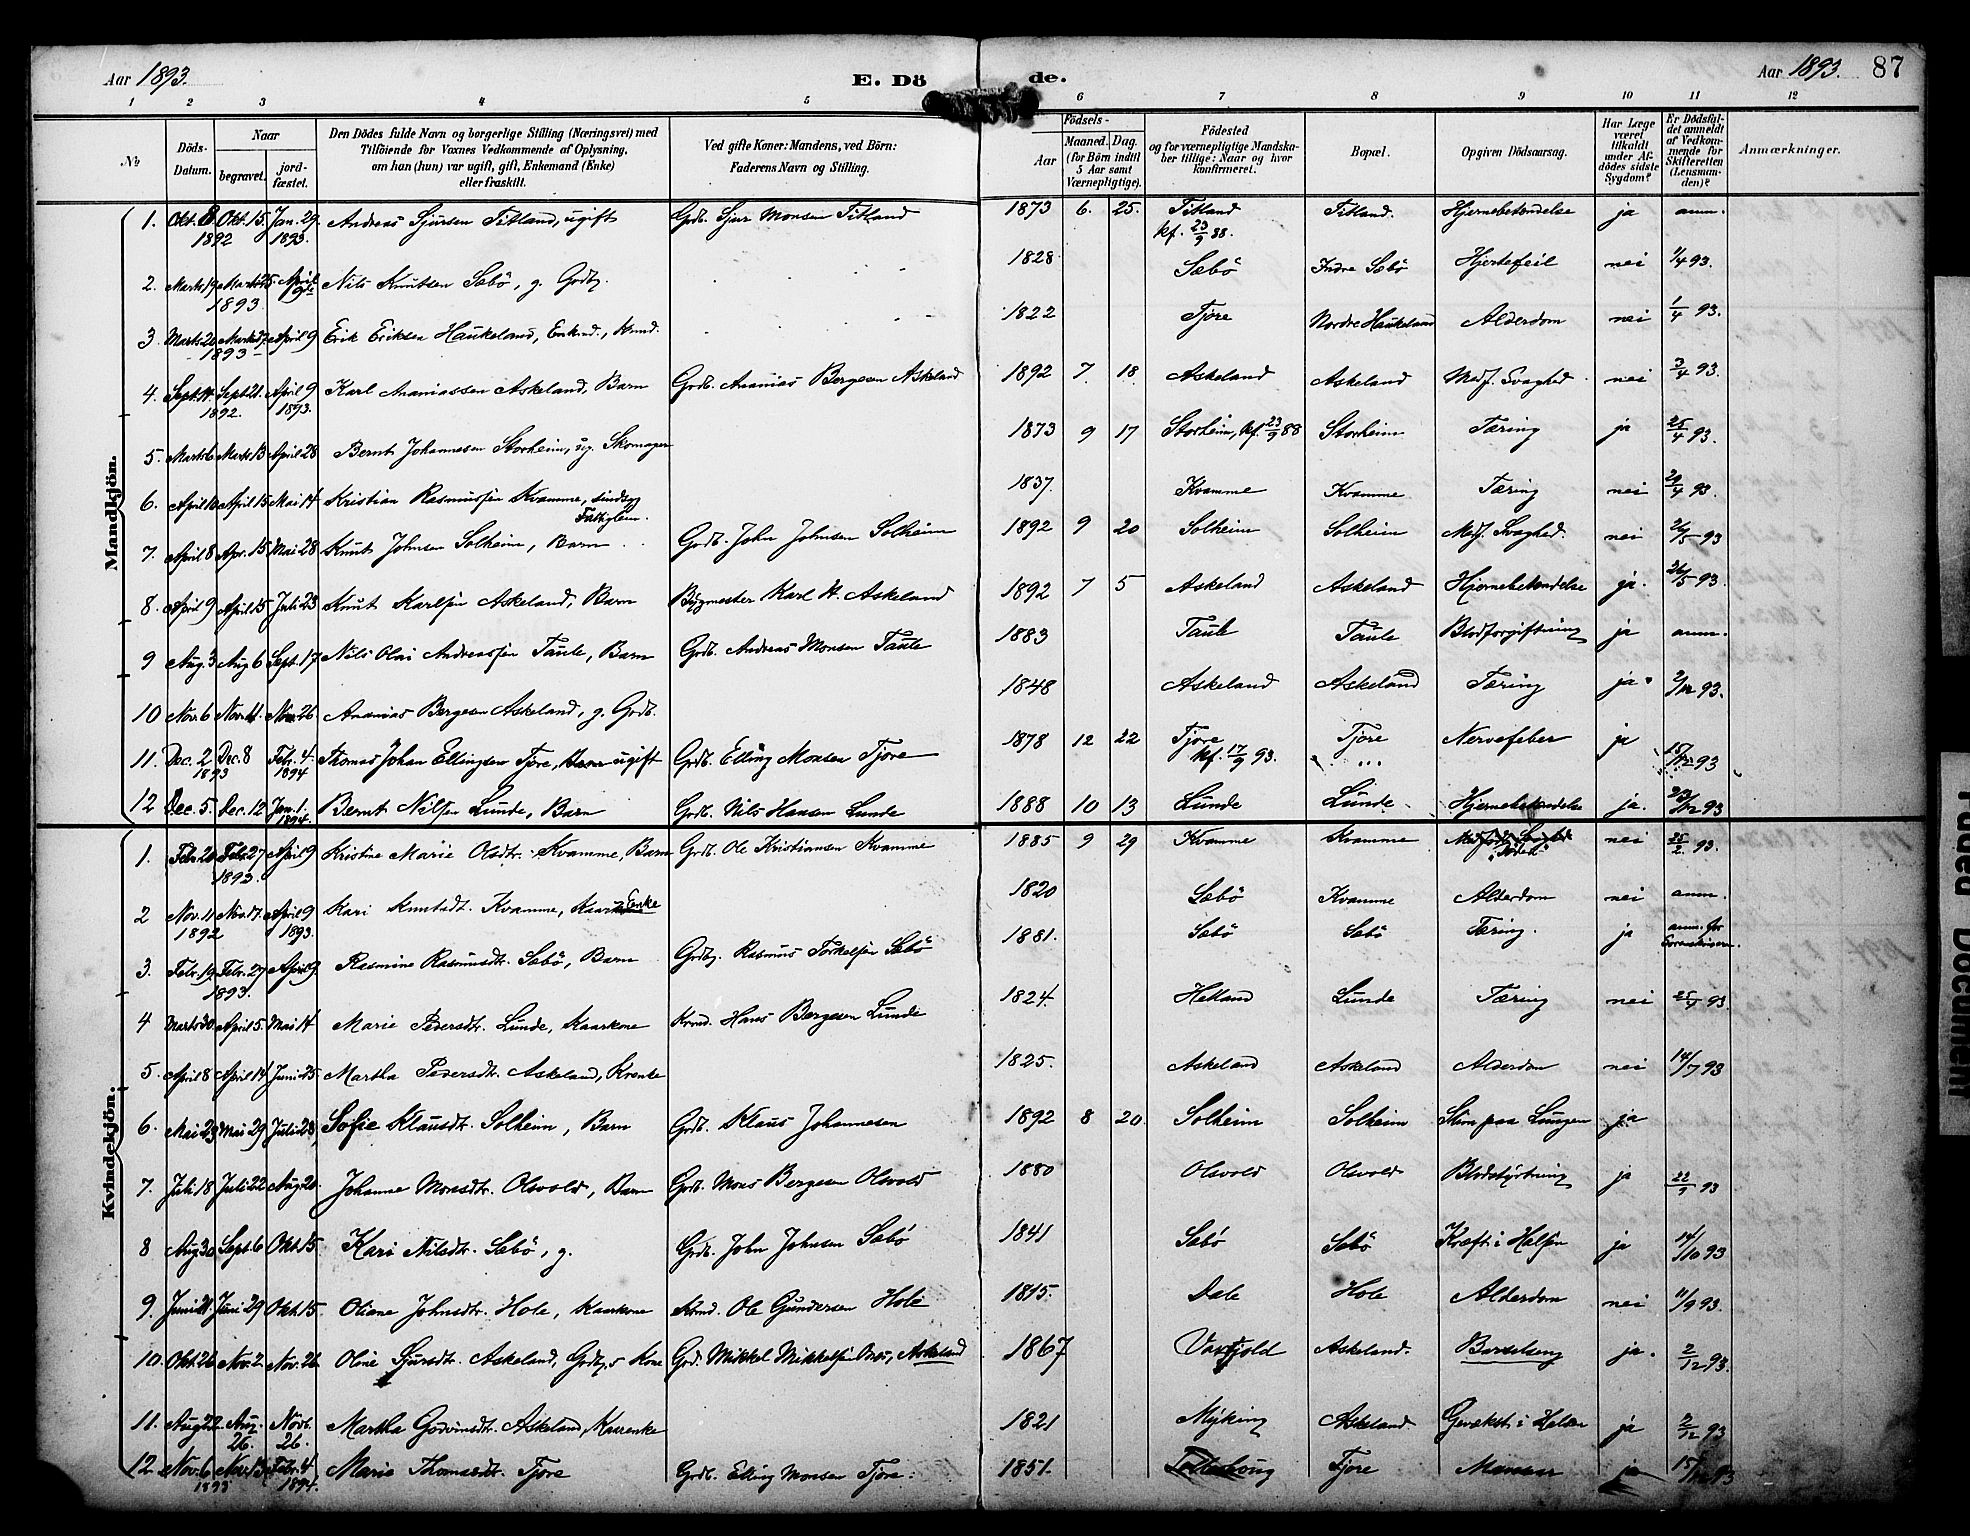 Aar 1893. E. Dö de. Aar 1893. 87
1 2 3 4 5 6 7 8 9 10 11 12
No Döds-Datum. Naar begravet. jord-fæstet. Den Dödes fulde Navn og borgerlige Stilling (Næringsvei) med Tilföiende for Voxnes Vedkommende af Oplysning, om han (hun) var ugift, gift, Enkemand (Enke) eller fraskilt. Ved gifte Koner: Mandens, ved Börn: Faderens Navn og Stilling. Födsels- Aar Maaned. Dag. (for Börn indtil 5 Aar samt Værnepligtige). Födested og for værnepligtige Mandskaber tillige: Naar og hvor konfirmeret. Bopæl. Opgiven Dödsaarsag. Har Læge været tilkaldt under Afdödes sidste Sygdom? Er Dödsfaldet anmeldt af Vedkommende for Skifteretten (Lensmanden)? Anmærkninger.
Mandkjön.
1. Okt. 8 1892 Okt. 15 Jan. 29. 1893. Andreas Sjursen Titland, ugift Grdb. Sjur Monsen Titland 1873 6. 25. Titland kf. 23/9 88. Titland. Hjernebetændelse ja anm.
2. Marts 19 Marts 25 1893 April 9de Nils Knutsen Sæbö, g. Grdb. 1828 Sæbö Indre Sæbö Hjertefeil nei 1/4 93.
3 Marts 20 Marts 27 1893 April 9 Erik Eriksen Haukeland, Enkmd., Krmd. 1822 Tjore Nordre Haukeland Alderdom nei 1/4 93.
4. Sept. 14 Sept. 21. 1892. April 9 1893. Karl Ananiassen Askeland, Barn Grdb. Ananias Bergesen Askeland 1892 7 18. Askeland Askeland Medf. Svaghed nei 2/4 93.
5. Marts 6 Marts 13 April 28 Bernt Johannesen Storheim, ug. Skomager 1873 9 17 Storheim, kf. 23/9 88 Storheim Tæring ja 25/4 93.
6. April 10 April 15 Mai 14 Kristian Rasmussen Kvamme, sindsyg Fattiglem. 1837. Kvamme Kvamme Tæring nei 29/4 93.
7. April 8 Apr. 15 Mai 28 Knut Johnsen Solheim, Barn Grdb. John Johnsen Solheim 1892 9 20 Solheim Solheim Medf. Svaghed. nei 26/5 93
8. April 9 April 15 Juli 23 Knut Karlsen Askeland, Barn Bygmester Karl H. Askeland 1892 7 5 Askeland Askeland Hjernebetændelse ja. 26/5 93.
9 Aug. 3 Aug 6 Sept. 17 Nils Olai Andreassen Taule, Barn Grdb. Andreas Monsen Taule 1883 Taule Taule Blodforgiftning ja anm.
10 Nov. 6 Nov. 11. Nov. 26 Ananias Bergesen Askeland, g. Grdb. 1848 Askeland Askeland Tæring ja. 2/12 93.
11. Dec. 2 1893 Dec. 8 Febr. 4 1894 Thomas Johan Ellingsen Tjore, ugift Grdb. Elling Monsen Tjore 1878 12 22 Tjore kf. 17/9 93. Tjore Nervefeber ja 15/12 93
12 Dec. 5 Dec. 12 Jan. 1. 1894. Bernt Nilsen Lunde, Barn Grdb. Nils Hansen Lunde 1888 10 13 Lunde Lunde Hjernebetændelse ja. 23/12 93
Kvindekjön.
1. Febr. 20 Febr. 27 1893. April 9 Kristine Marie Olsdtr. Kvamme, Barn Grdb. Ole Kristiansen Kvamme 1885 9 29 Kvamme Kvamme nei 25/2. 93.
2 Nov. 11 1892 Nov. 17. April 9 1893. Kari Knutsdt. Kvamme, Enke 1820 Sæbö Kvamme Alderdom nei anm.
3. Febr. 19 Febr. 27 1893. April 9 Rasmine Rasmusdtr. Sæbö, Barn Grdb. Rasmus Torkelsen Sæbö 1881. Sæbö Sæbö Tæring. ja anm. for Sorenskriveren.
4 Marts 30. April 5. Mai 14 Marie Pedersdtr. Lunde, Kaarkone Krmd. Hans Bergesen Lunde 1824. Helland Lunde Tæring nei 25/4 93
5. April 8 April 14 Juni 25 Martha Pedersdtr. Askeland, Krenke 1825. Askeland Askeland Alderdom nei 14/7 93
6. Mai 23 Mai 29 Juli 23, Sofie Klausdt. Solheim, Barn Grdb. Klaus Johannesen 1892 8 20. Solheim Solheim Slim paa Lungen ja
7. Juli 18 Juli 22 Aug. 20. Johanne Monsdtr. Olsvold, Barn Grdb. Mons Bergesen Olsvold 1880 Olsvold Olsvold Blodstyrtning ja 22/9 93
8 Aug 30 Sept. 6 Okt. 15 Kari Nilsdtr. Sæbö, g. Grdb. John Johnsen Sæbö 1841 Sæbö Sæbö Kræft i Halsen ja 14/10 93
9. Juni 21 Juni 29 Okt. 15 Oliane Johnsdtr. Hole, Kaarkone Krmd. Ole Gundersen Hole 1815. Dale Hole Alderdom nei 11/9 93.
10. Okt. 26 Nov. 2. Nov. 26 Oline Sjursdtr. Askeland, Grdb.s Kone Grd. Mikkel Mikkelsen Askeland 1867 Askeland. Barselseng ja. 2/12 93.
11. Aug. 22 Aug. 26. Novb. 26. Martha Godvinsdtr. Askeland, Kaarenke 1821 Myking Askeland. Gevækst i Halsen ja 2/12 93
12. Nov. 6 1893 Nov. 13 Febr. 4 1894. Marie Thomasdtr. Tjore Grdb. Elling Monsen Tjore. 1851. Tjore ja 15/12 93
Faded Document